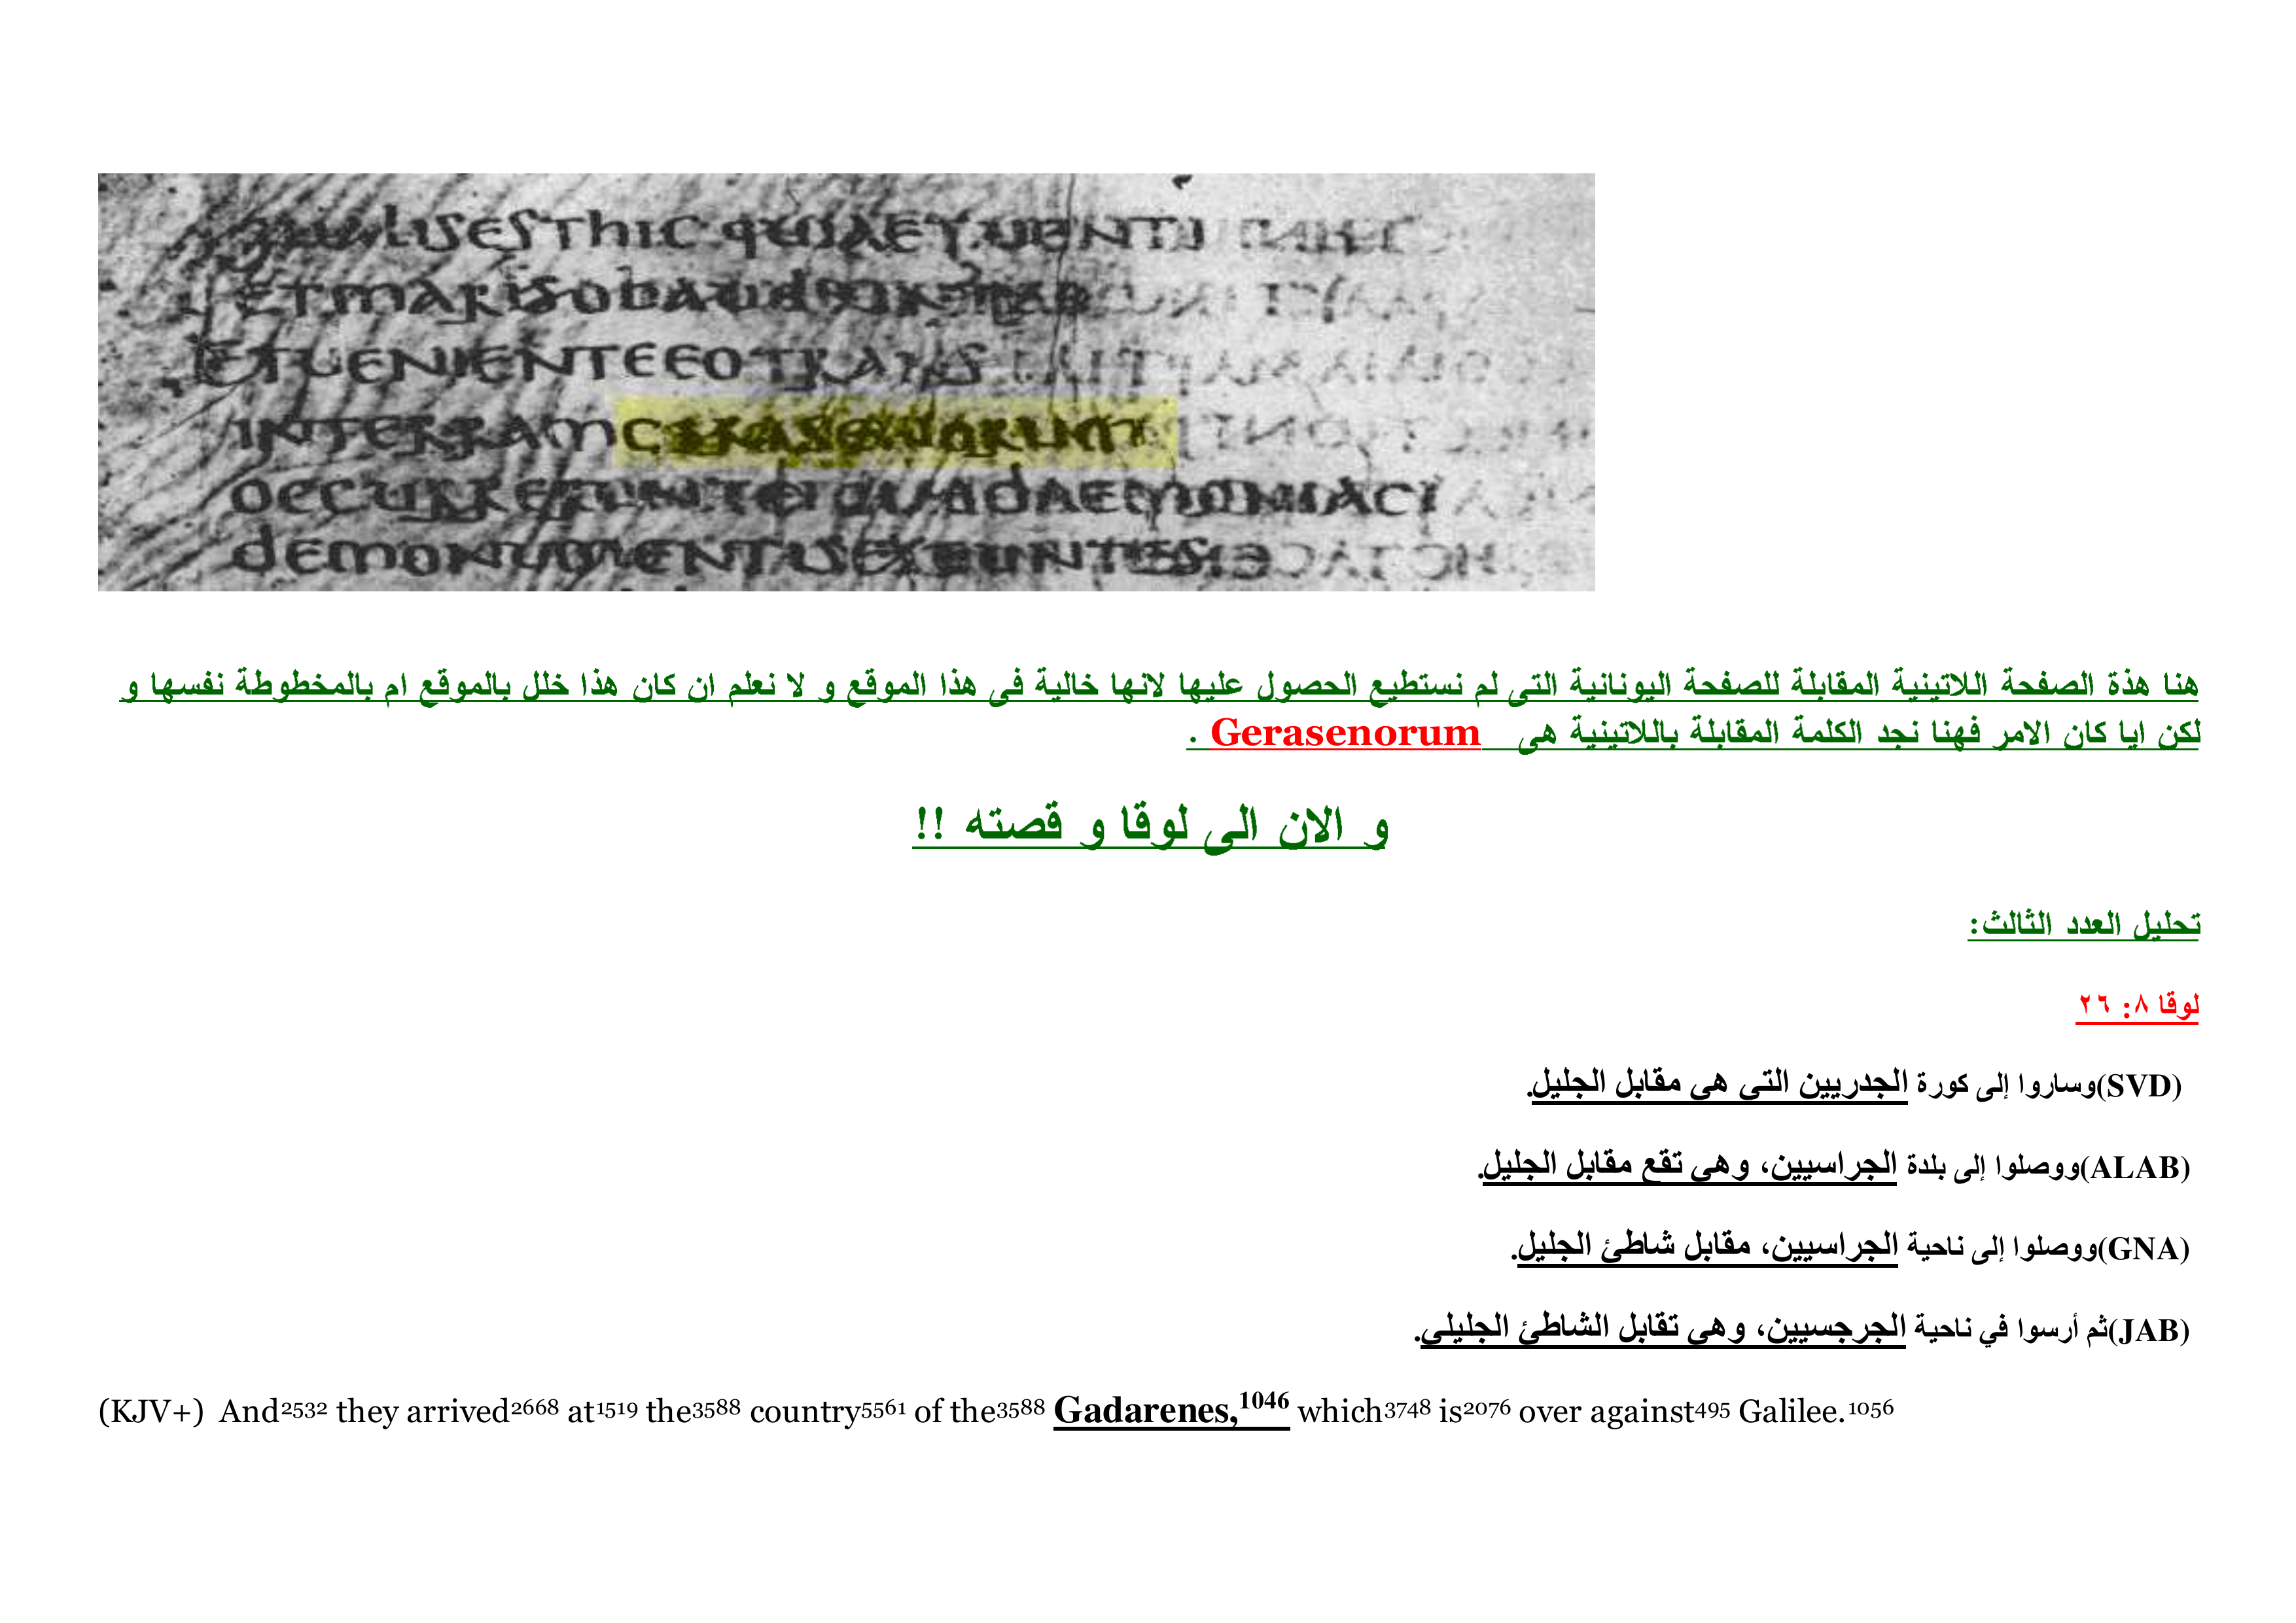 ETMARISOBAUD
ETUENIENTEEOTRANS
INTERRAM
OCCURRERUNTEIDUODAEMONIACI
DEMONUMENTISEXEUNTES
هنا هذة الصفحة اللاتينية المقابلة للصفحة اليونانية التى لم نستطيع الحصول عليها لانها خالية فى هذا الموقع و لا نعلم ان كان هذا خلل بالموقع ام بالمخطوطة نفسها و
لكن ايا كان الامر فهنا نجد الكلمة المقابلة باللاتينية هى Gerasenorum .
و الان الى لوقا و قصته !!
تحليل العدد الثالث:
لوقا ٨: ٢٦
(SVD)وساروا إلى كورة الجدريين التى هى مقابل الجليل.
(ALAB)ووصلوا إلى بلدة الجراسيين، وهي تقع مقابل الجليل.
(GNA)ووصلوا إلى ناحية الجراسيين، مقابل شاطئ الجليل.
(JAB)ثم أرسوا في ناحية الجرجسيين، وهي تقابل الشاطئ الجليلي.
(KJV+) And2532 they arrived2668 at1519 the3588 country5561 of the3588 Gadarenes,1046 which3748 is2076 over against495 Galilee.1056